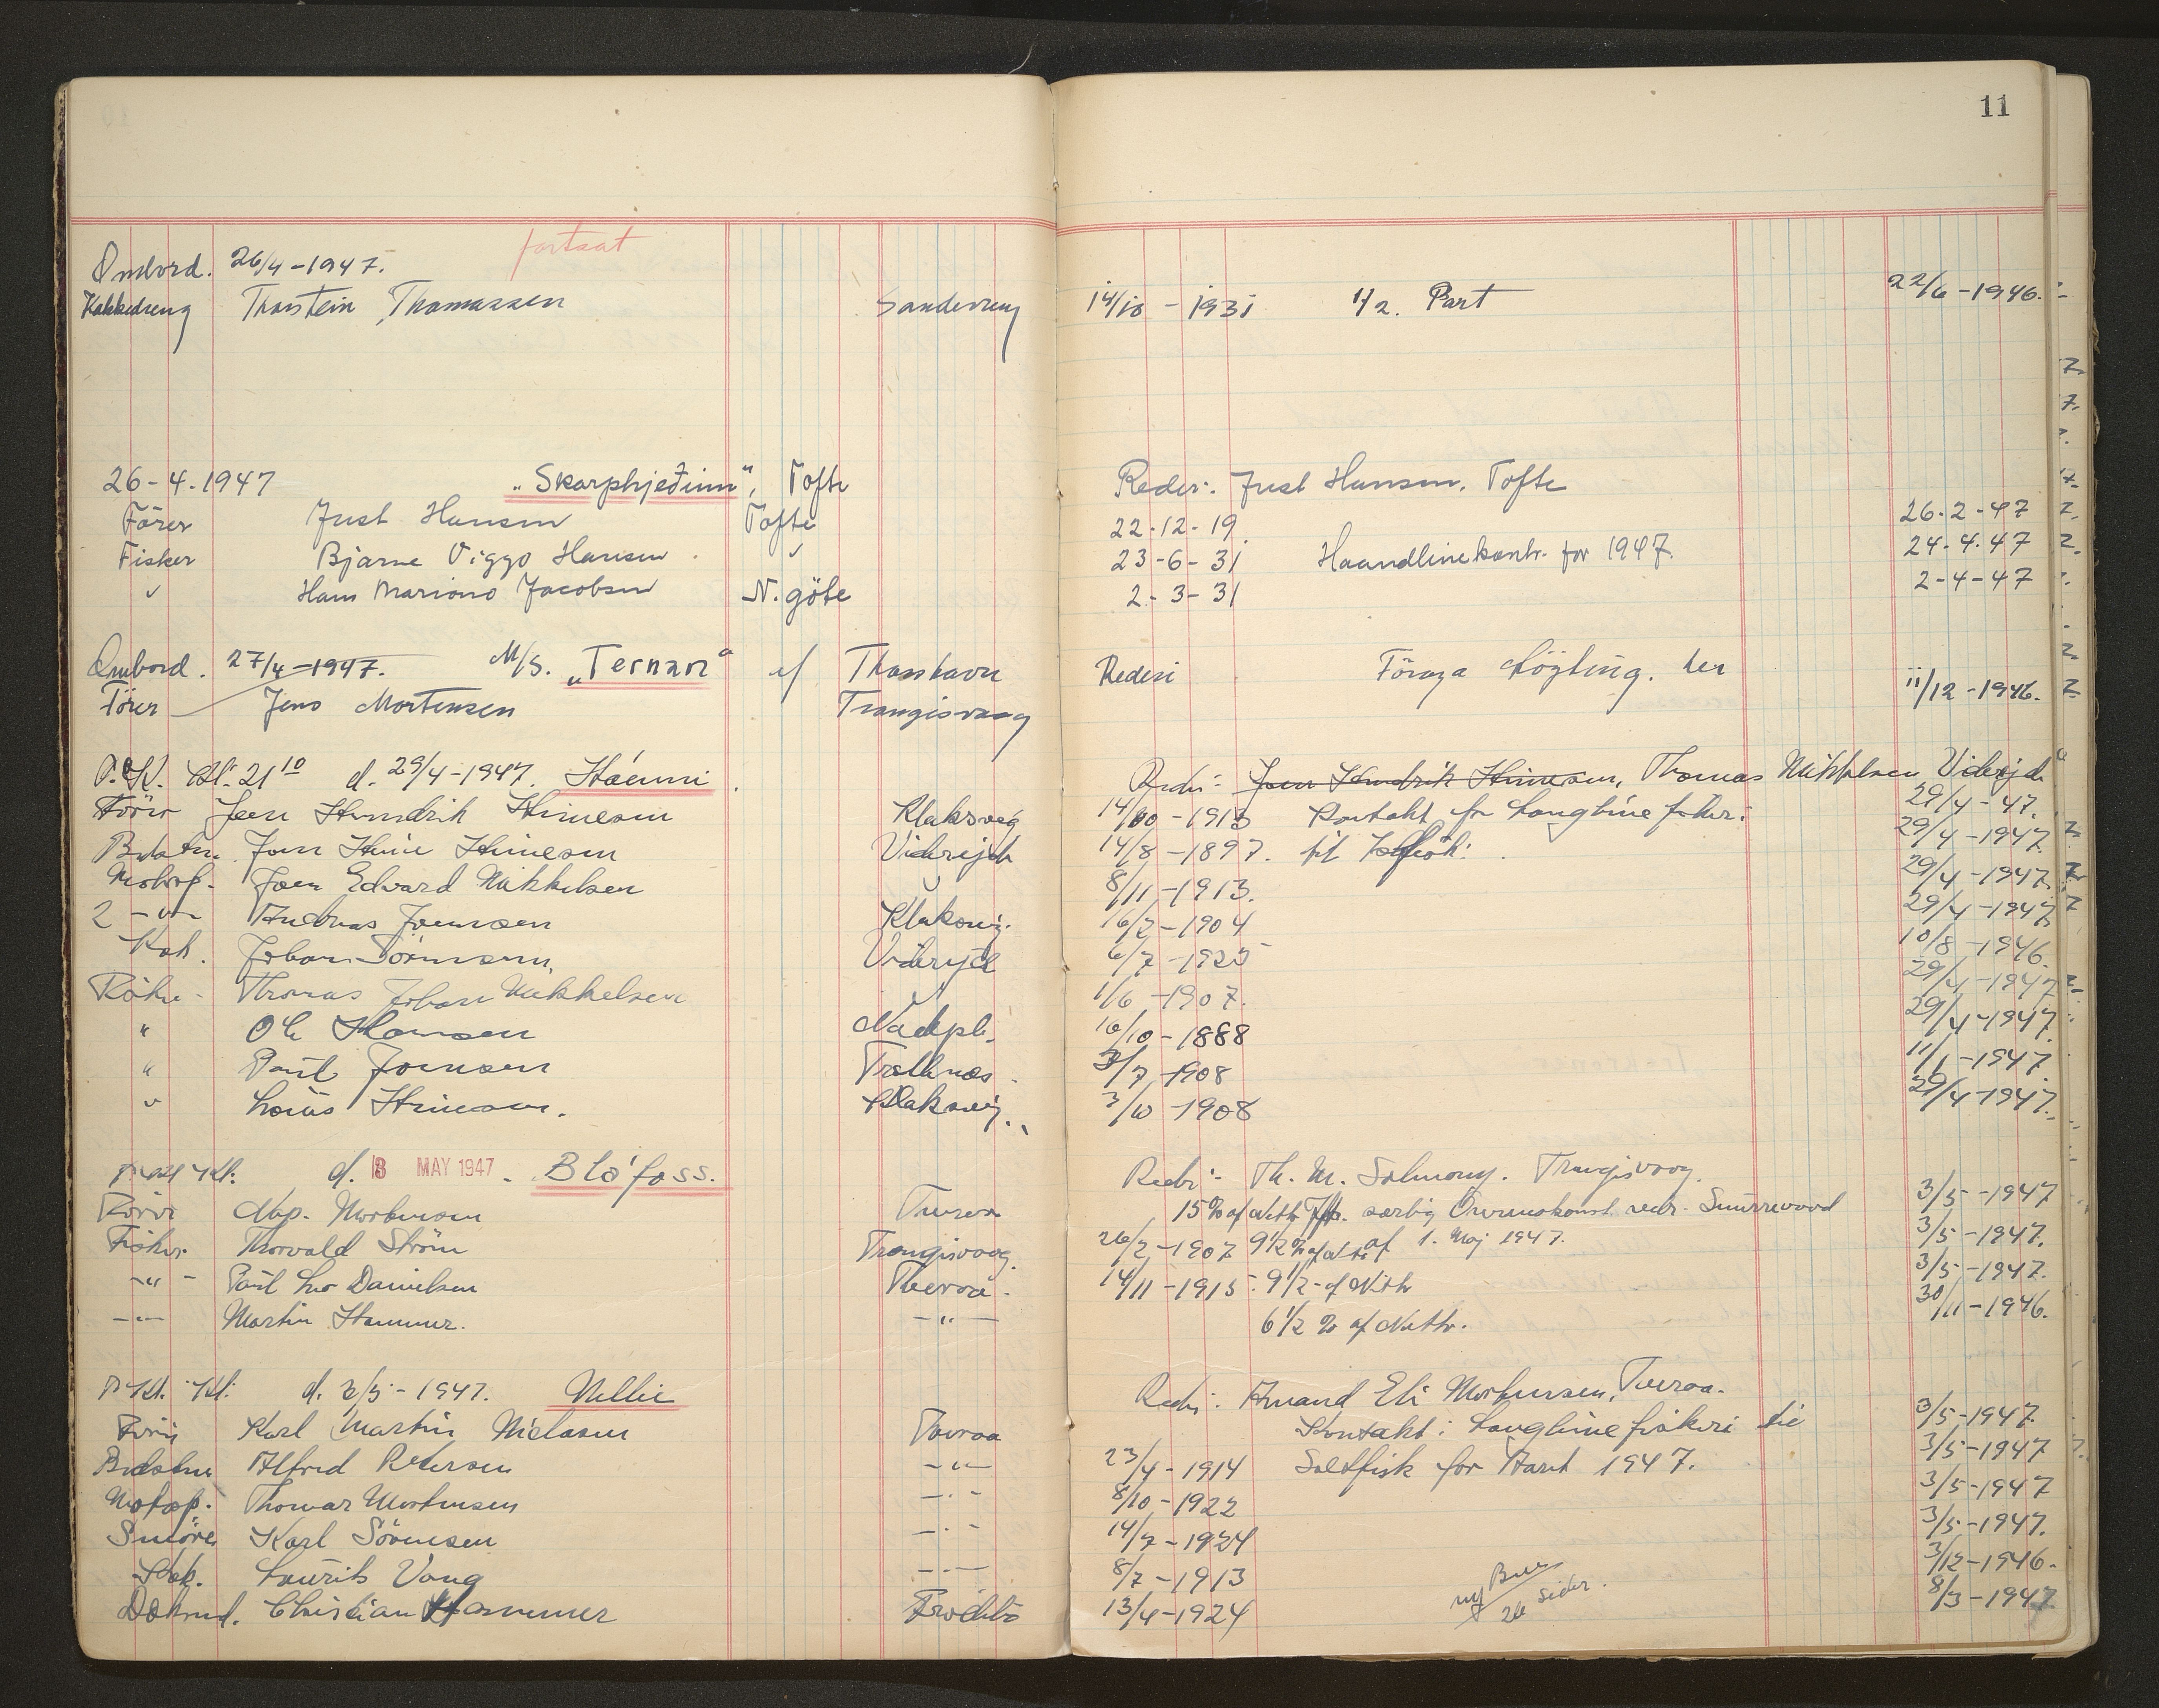 11
fortsat
Ombord. 26/4-1947.
Kokkedreng Thorstein Thomassen Sandevaag 14/10-1931 1/2. Part 22/6-1946.
26-4-1947 "Skarphjeðinn", Tofte Reder: Just Hansen. Tofte
Förer Just Hansen Tofte 22-12-19. 26-2-47
Fisker Bjarne Viggo Hansen " 23-6-31 Haandlinekontr. for 1947. 24-4-47
" Hans Marions Jacobsen N. göte 2-3-31 2-4-47
Ombord. 27/4-1947. M/S. "Ternan" af Thorshavn Rederi Föroya Lögting. her
Förer Jens Mortensen Trangisvaag 11/12-1946.
Kl. 21 10 d. 29/4-1947. Reder: Joen Hendrik Heinesen, Thomas Mikkelsen Viderejde
Förer Joen Hendrik Heinesen Klaksvig 14/10-1913 Kontakt for Langline fiskeri 29/4-47.
Bedstm. Joen Heine Heinesen Viderejde 14/8-1897. til 29/4-1947
Motorp. Joen Edvard Mikkelsen " 8/11-1913. 29/4-1947
2 -"- Andreas Joensen Klaksvig. 16/2-1904 29/4-1947
Kok. Johan Sörensen Viderejde 6/7-1925 10/8-1946
Fisker - Thomas Johan Mikkelsen " 1/6-1907. 29/4-1947
" Ole Hansen 16/10-1888 29/4-1947
" Poul Joensen Tröllenæs. 3/7-1908 11/1-1947
" Louis Heinesen. Klaksvig. 3/10-1908 29/4-1947.
d. 3 MAY 1947. Bláfoss. Reder:- Th. M. Salmony. Trangisvaag.
Förer Mortensen Tveraa 15% af Netto særlig Overenskomst vedr. Snurrevaad 3/5-1947
Fisker. Thorvald Ström Trangisvaag. 26/2-1907 9 1/2 % af Netto af 1. Maj 1947. 3/5-1947.
-"- Poul Danielsen Tveraa. 14/11-1915. 9 1/2 - af Netto 3/5-1947.
-"- Martin Hammer. -"- 6 1/2 % af Netto. 30/11-1946.
d. 3/5-1947. Nellie Reder: Amand Eli Mortensen, Tveraa.
Förer Karl Martin Nielsen Tveraa Kontakt: Langline fiskeri til 3/5-1947
Bedstm Alfred Petersen -"- 23/4-1914 Saltfisk for Aaret 1947. 3/5-1947
Motorp. Thomas Mortensen -"- 8/10-1922 3/5-1947
Smörer Karl Sörensen -"- 14/7-1924 3/5-1947.
Kok. Laurits Vang -"- 8/7-1913 3/12-1946.
Dæksmd. Christian Hammer Frodebö 13/4-1924 8/3-1947
ny
26 sider.